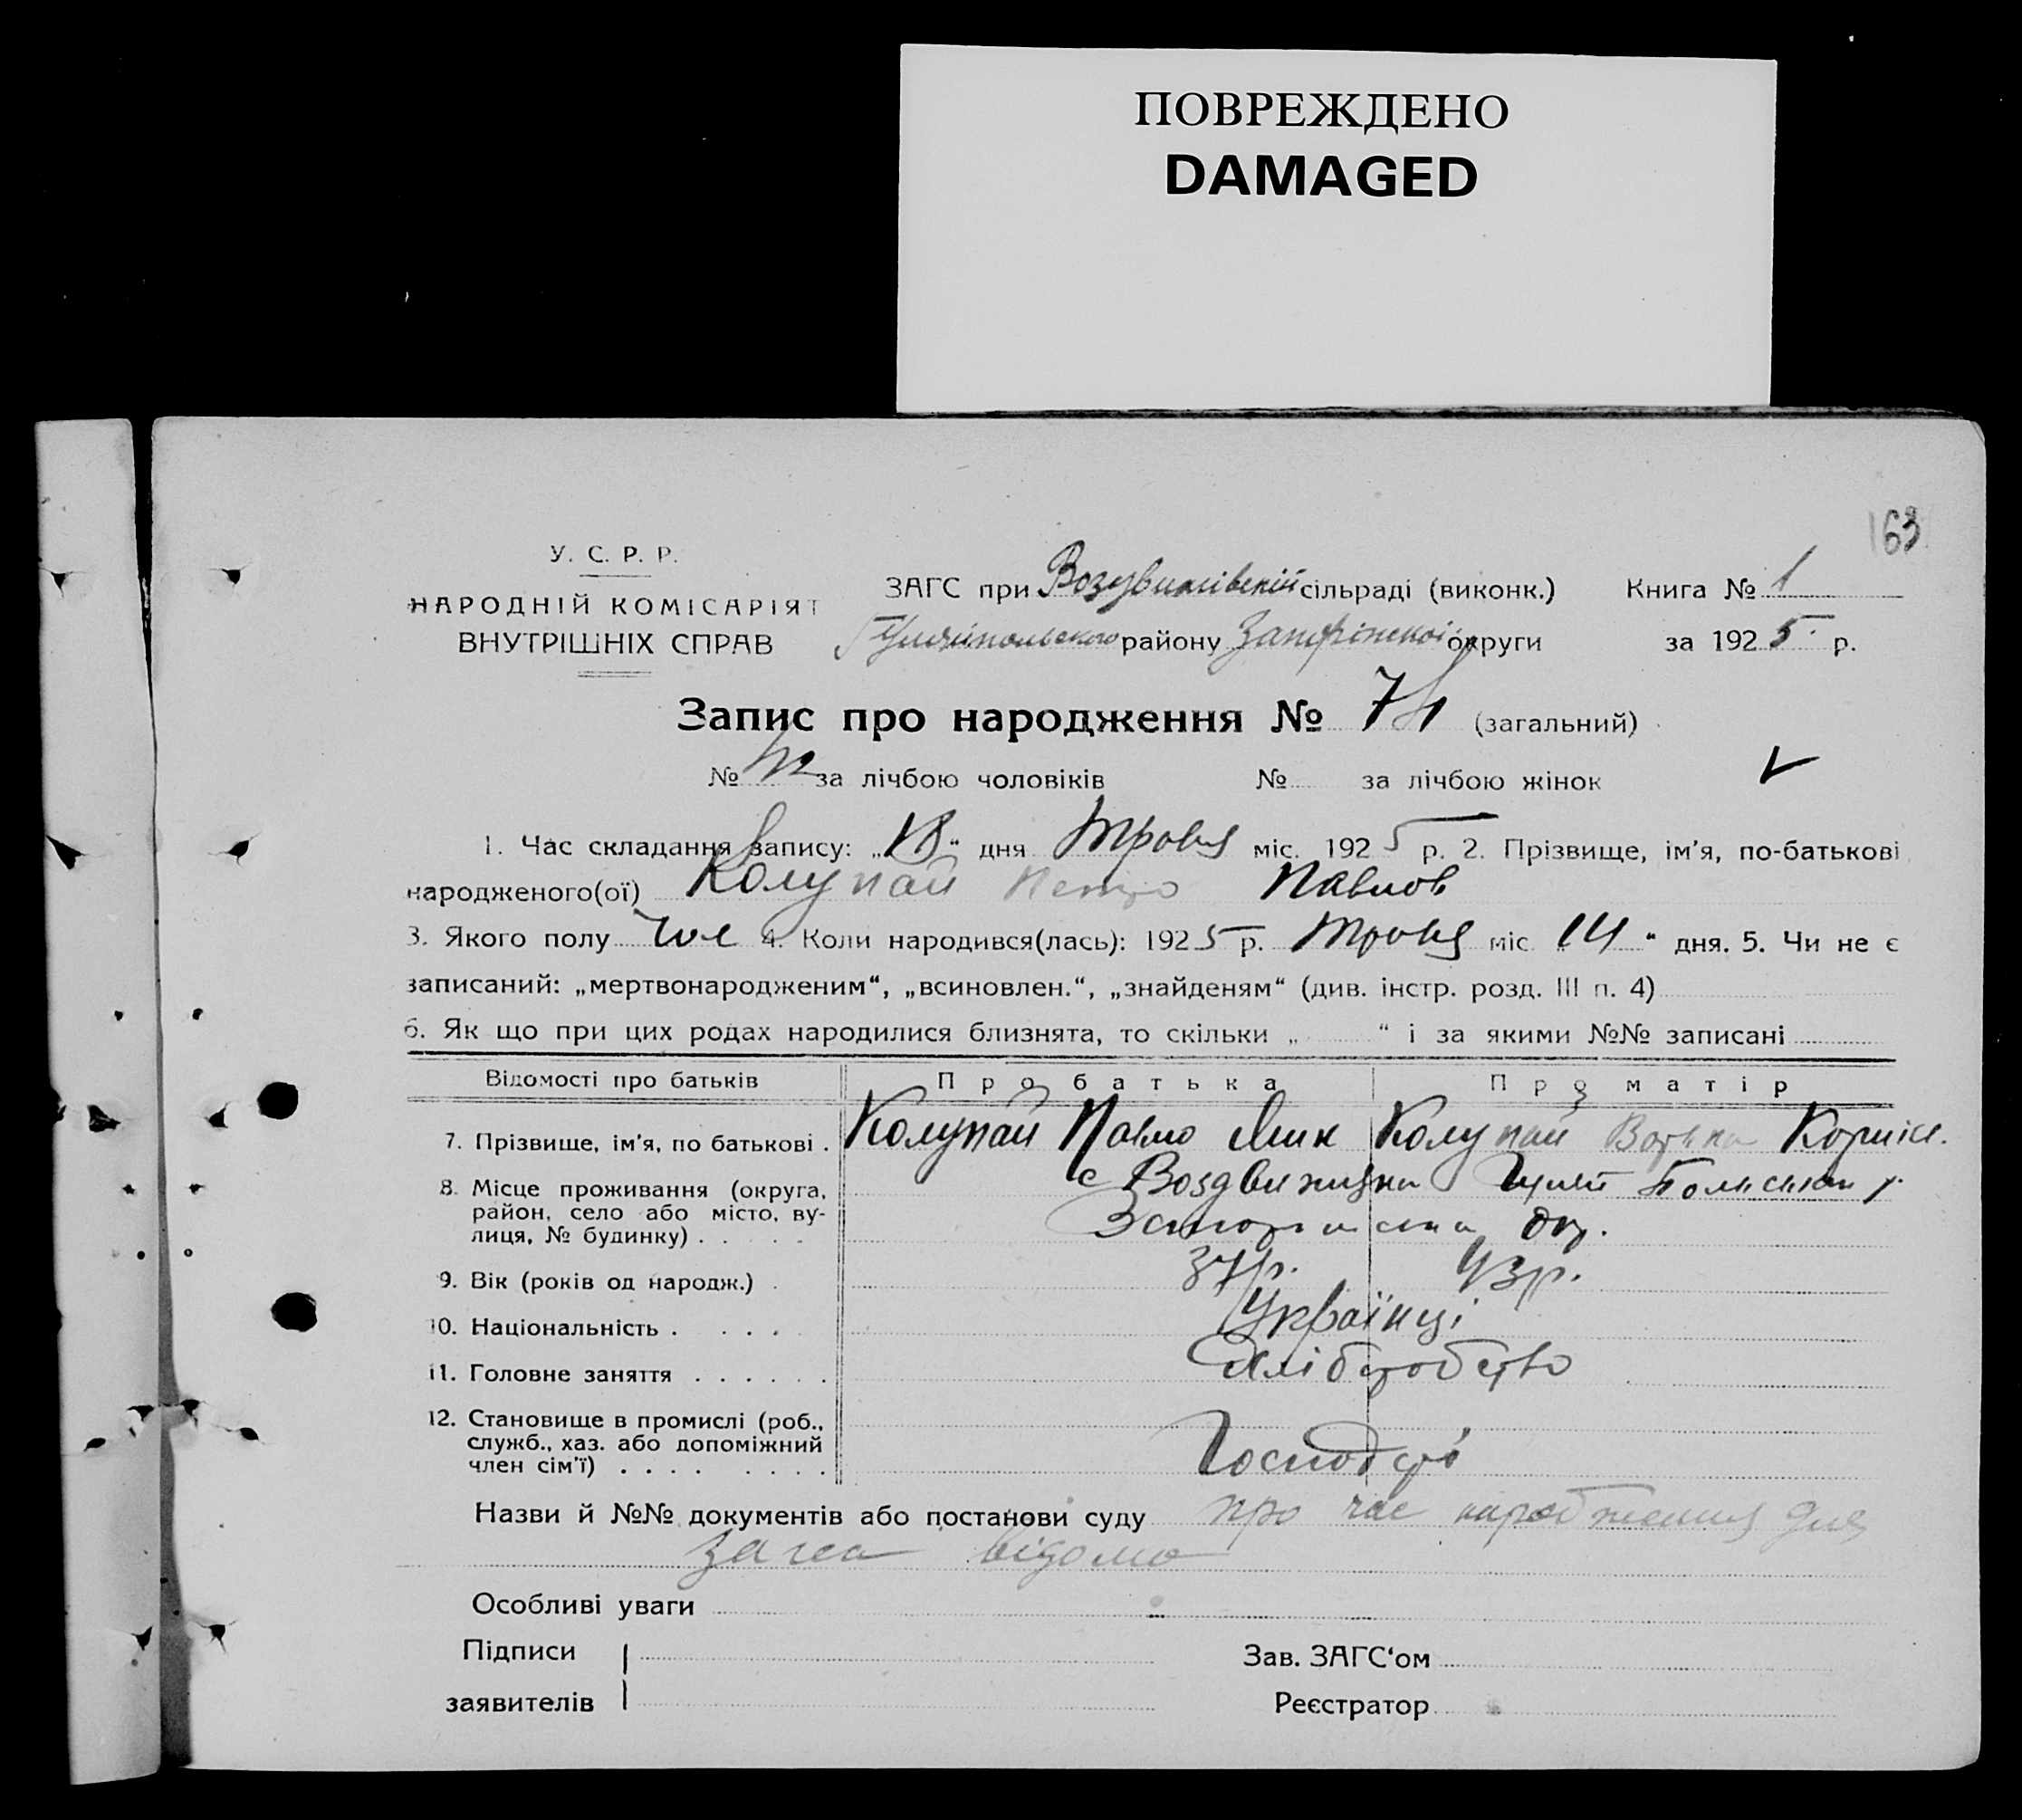 ПОВРЕЖДЕНО
DAMAGED
163
У. С. Р. Р.
НАРОДНІЙ КОМІСАРІЯТ
ВНУТРІШНІХ СПРАВ
ЗАГС при Воздвижівській сільраді (виконк.) Книга № 1
Гуляйпольського району Запоріжської округи за 1925 р.
Запис про народження № (загальний)
№ 42 за лічбою чоловіків № за лічбою жінок
1. Час складання запису: „18“ дня Травня міс. 1925 р. 2. Прізвище, ім'я, по-батькові
народженого(ої) Колупай Петро Павлов
3. Якого полу чол 4. Коли народився(лась): 1925 р. Травня міс 14 “ дня. 5. Чи не є
записаний: „мертвонародженим“, „всиновлен.“, „знайденям“ (див. інстр. розд. III п. 4)
6. Як що при цих родах народилися близнята, то скільки „ “ і за якими №№ записані
Відомості про батьків Про батька Про матір
7. Прізвище, ім'я, по батькові . Колупай Павло Колупай Корніє.
8. Місце проживання (округа, район, село або місто, вулиця, № будинку) . . . . . с Воздвижувка Гуляй Польськ р.
Запорізська окр.
9. Вік (років од народж.) . 37 р. 43 р.
10. Національність . . . . . Українці
11. Головне заняття . . . . . . Хліборобство
12. Становище в промислі (роб., служб., хаз. або допоміжний член сім'ї) . . . . . . . . Господарі
Назви й №№ документів або постанови суду про час народження для
загса відомо
Особливі уваги
Підписи Зав. ЗАГС‘ом
заявителів Реєстратор